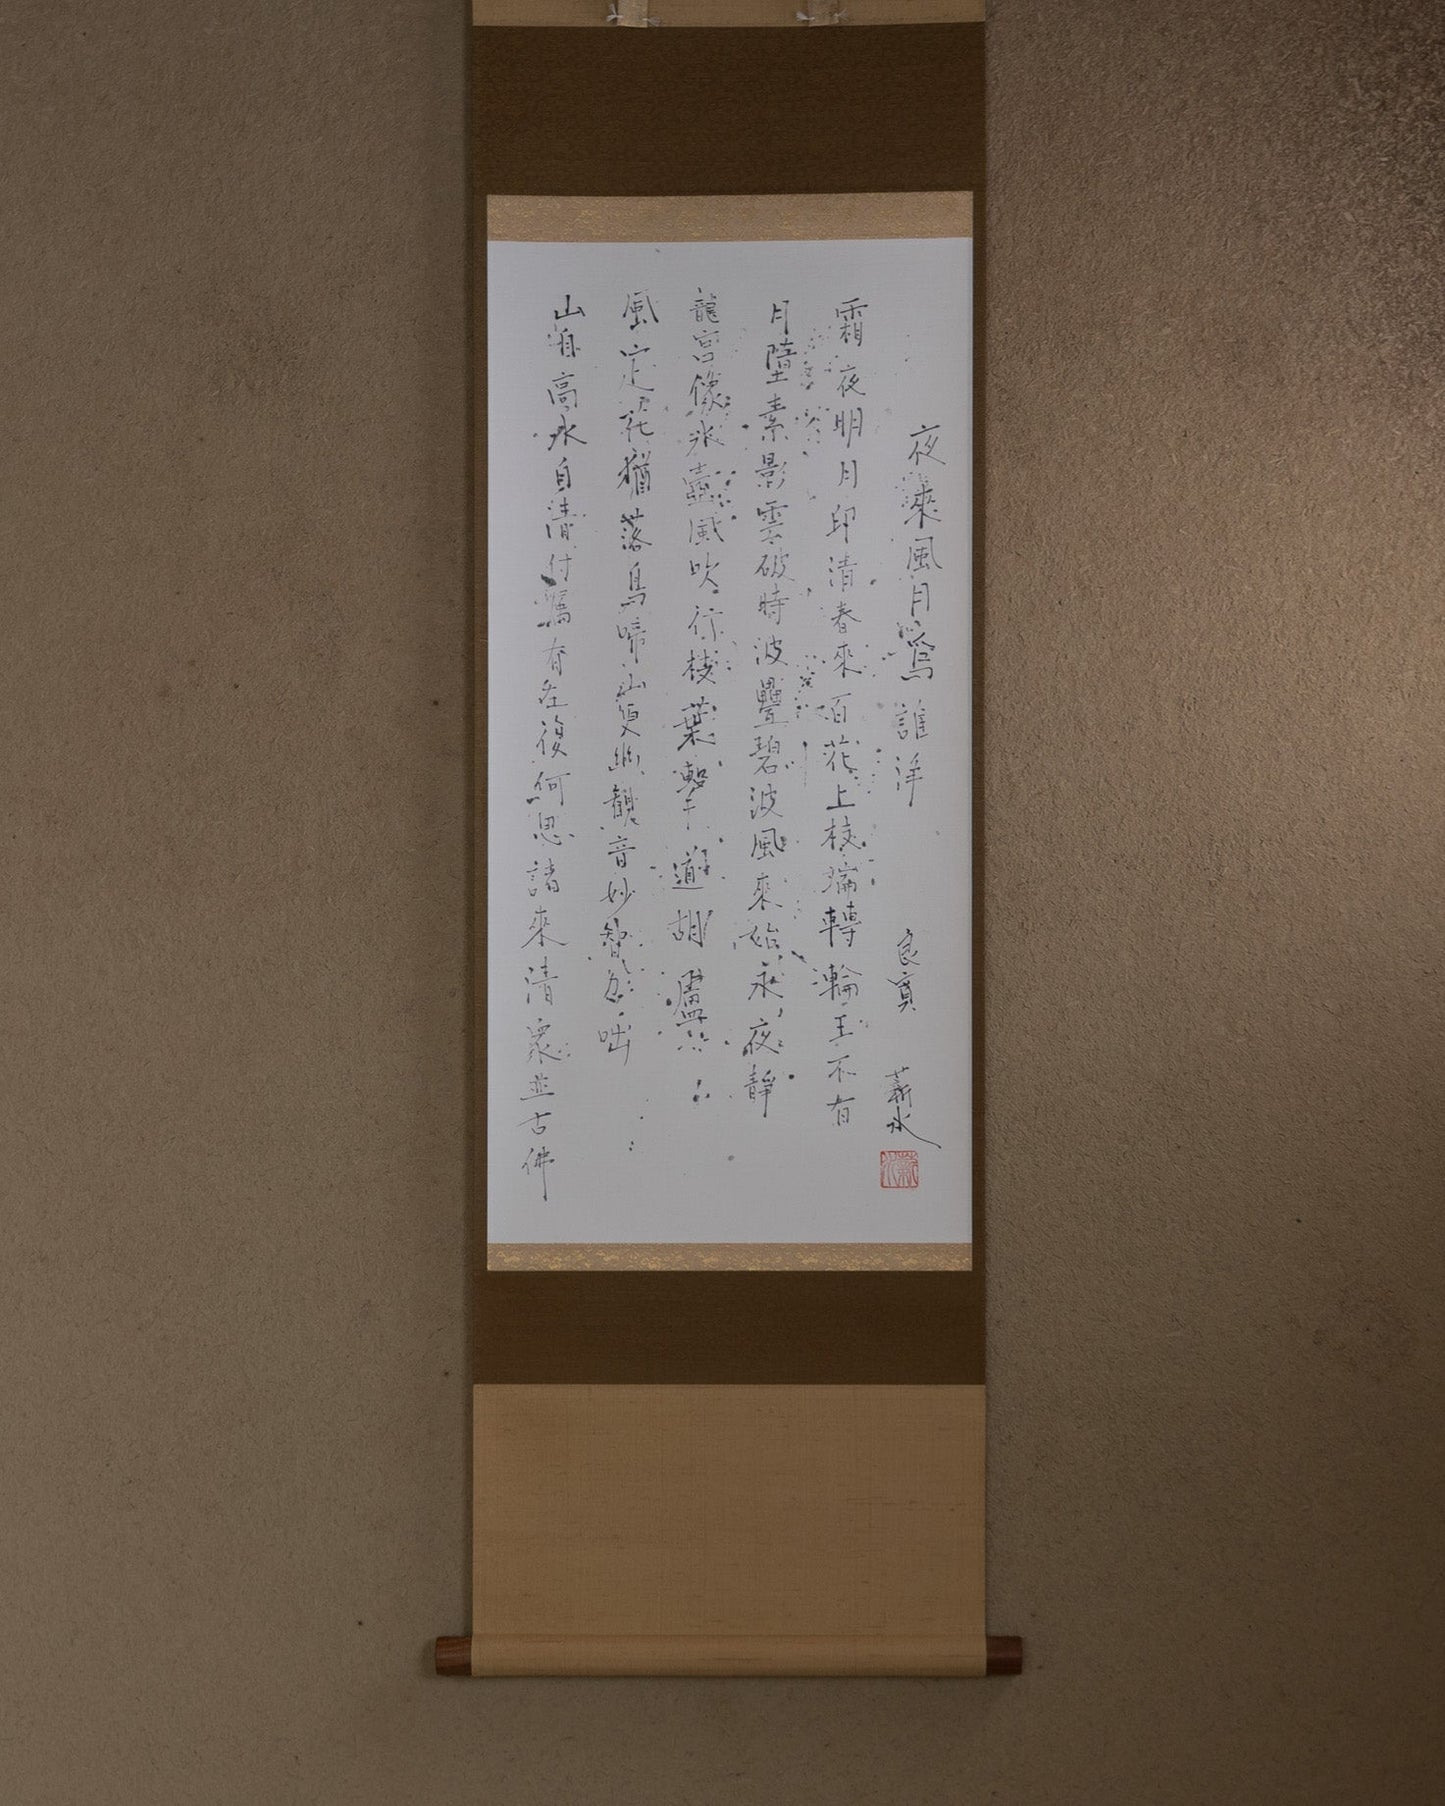 夜來風月為誰淨
良寛 蘄水
霜夜明月印清春來百花上枝端轉輪王不有
月墮素影雲破時波疊碧波風來始永夜靜
龍宮像氷壺風吹行枝葉擊道胡盧
風定花猶落鳥啼山更幽觀音妙智力咄
山自高水自清付囑有在復何思諸來清衆並古佛